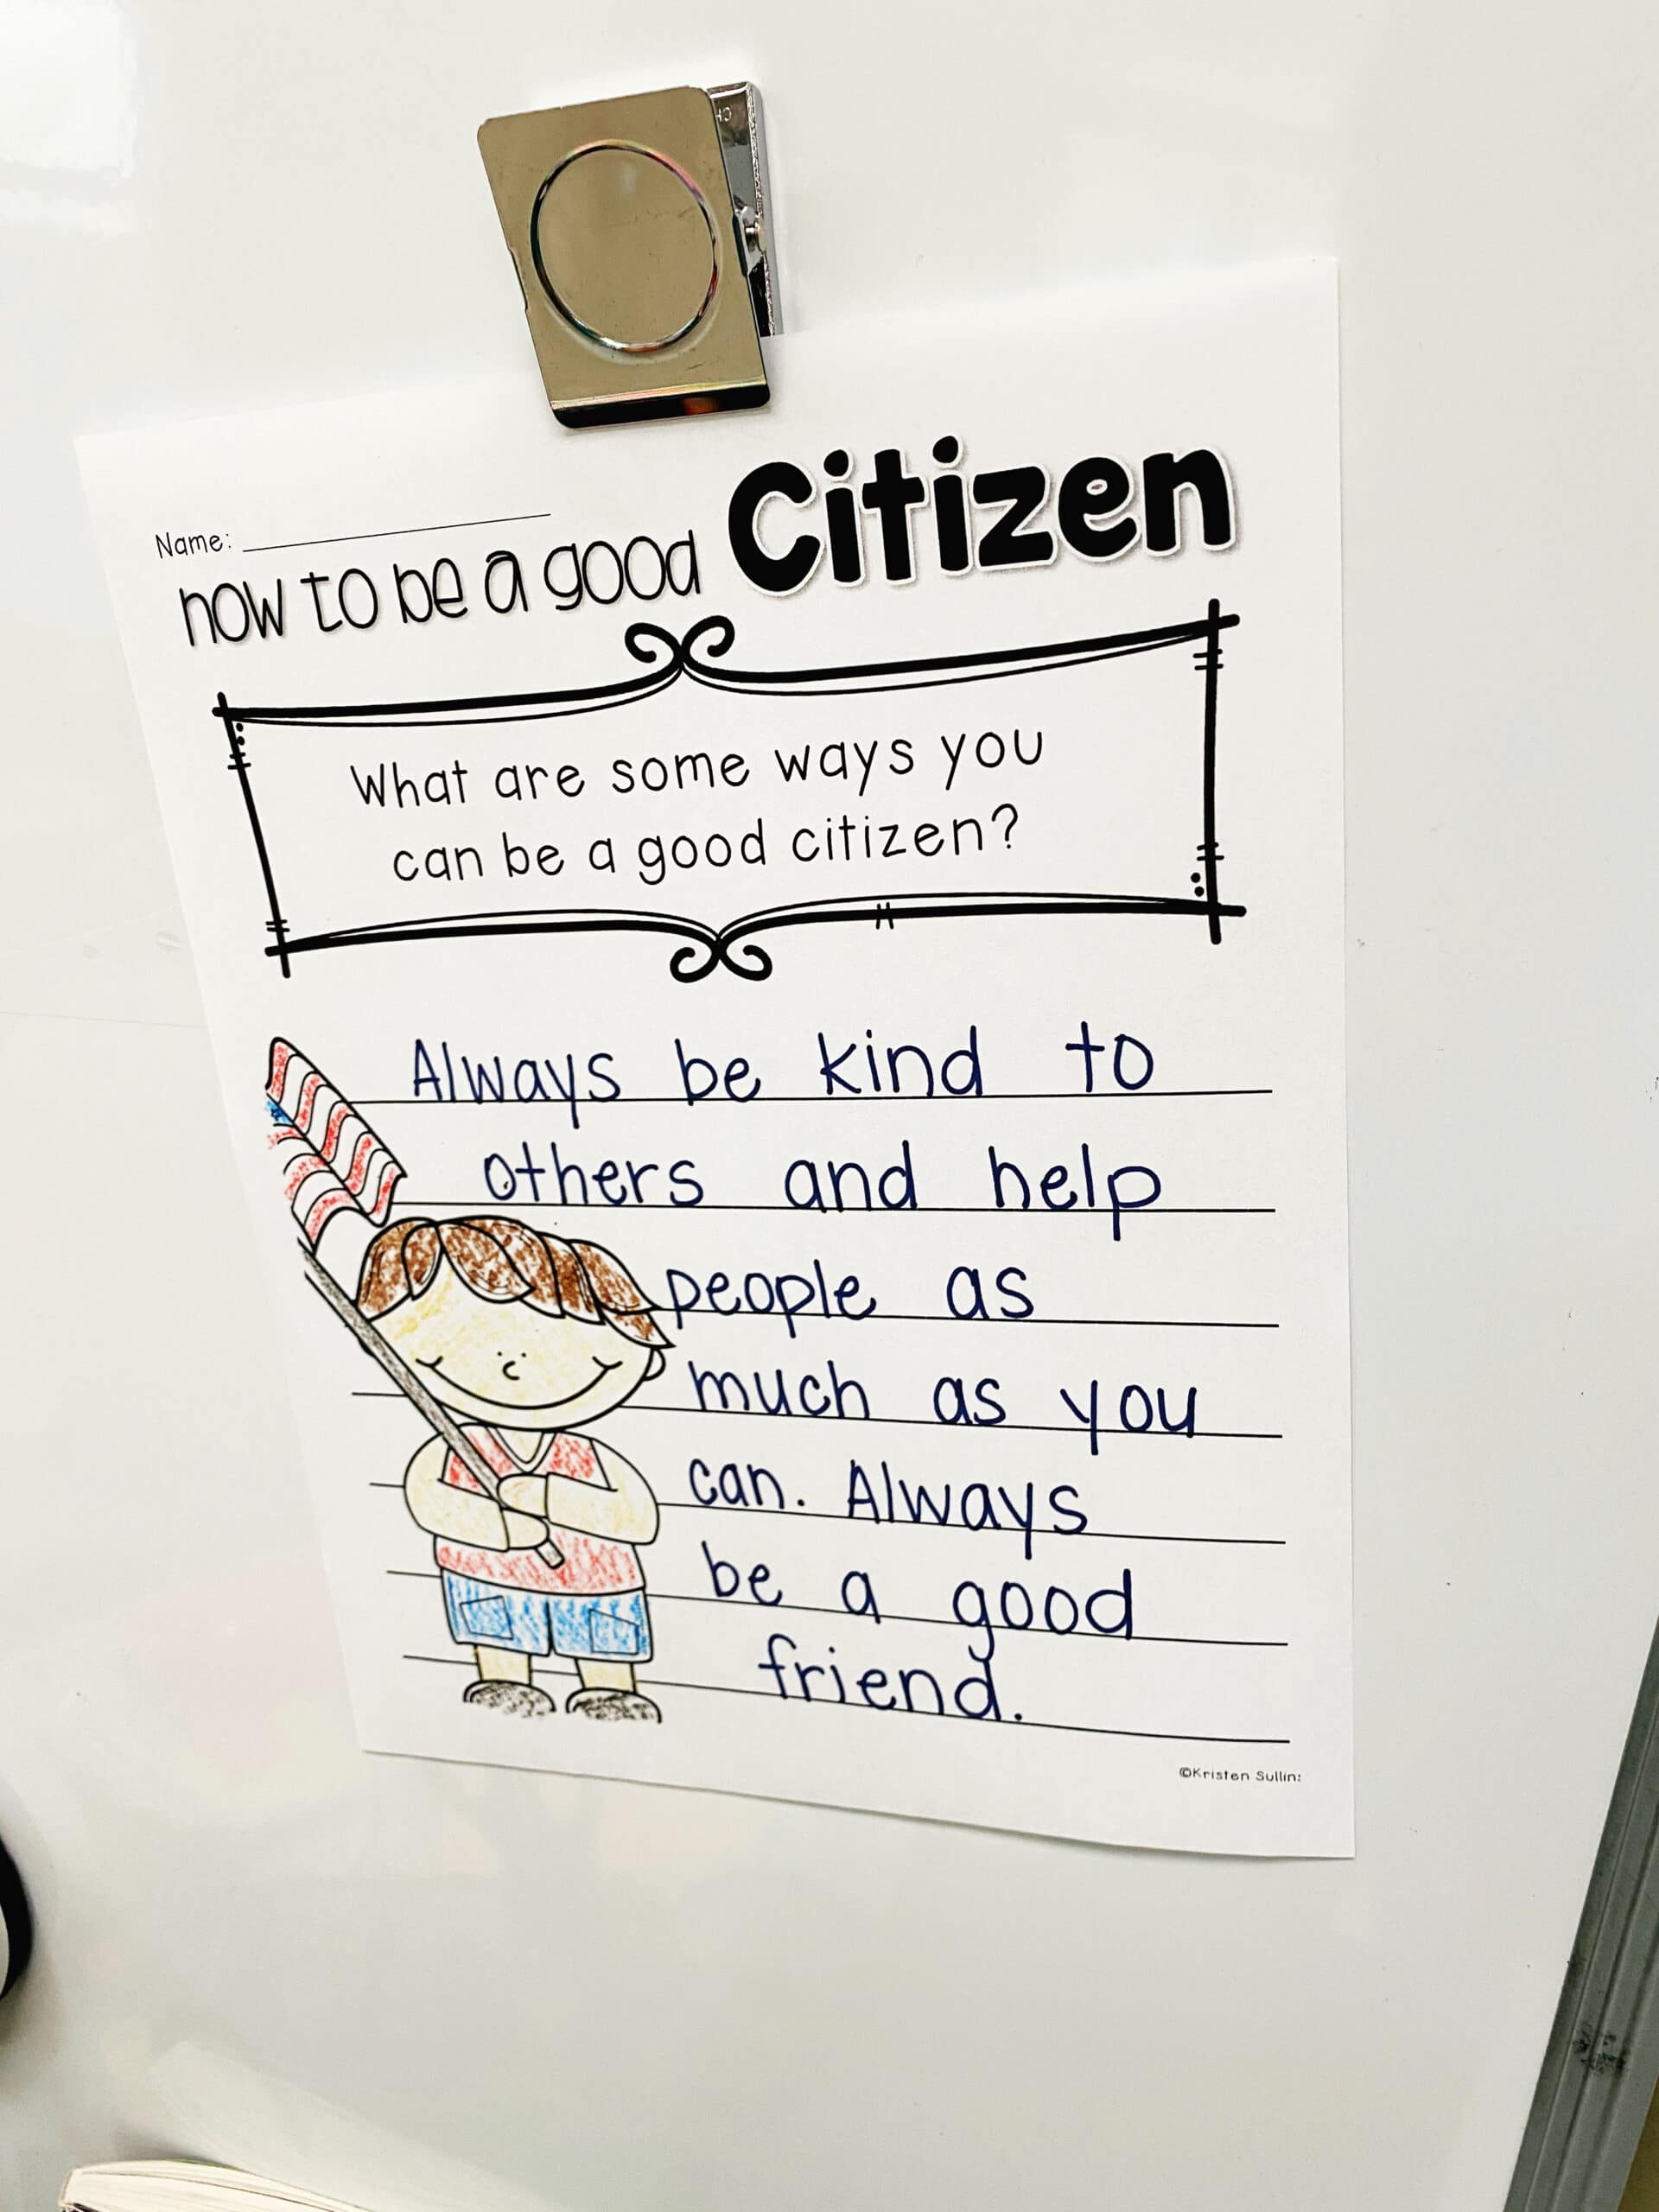 Name:
how to be a good Citizen
What are some ways you
can be a good citizen?
Always be kind to
others and help
people as
much as you
can. Always
be a good
friend.
©Kristen Sullin